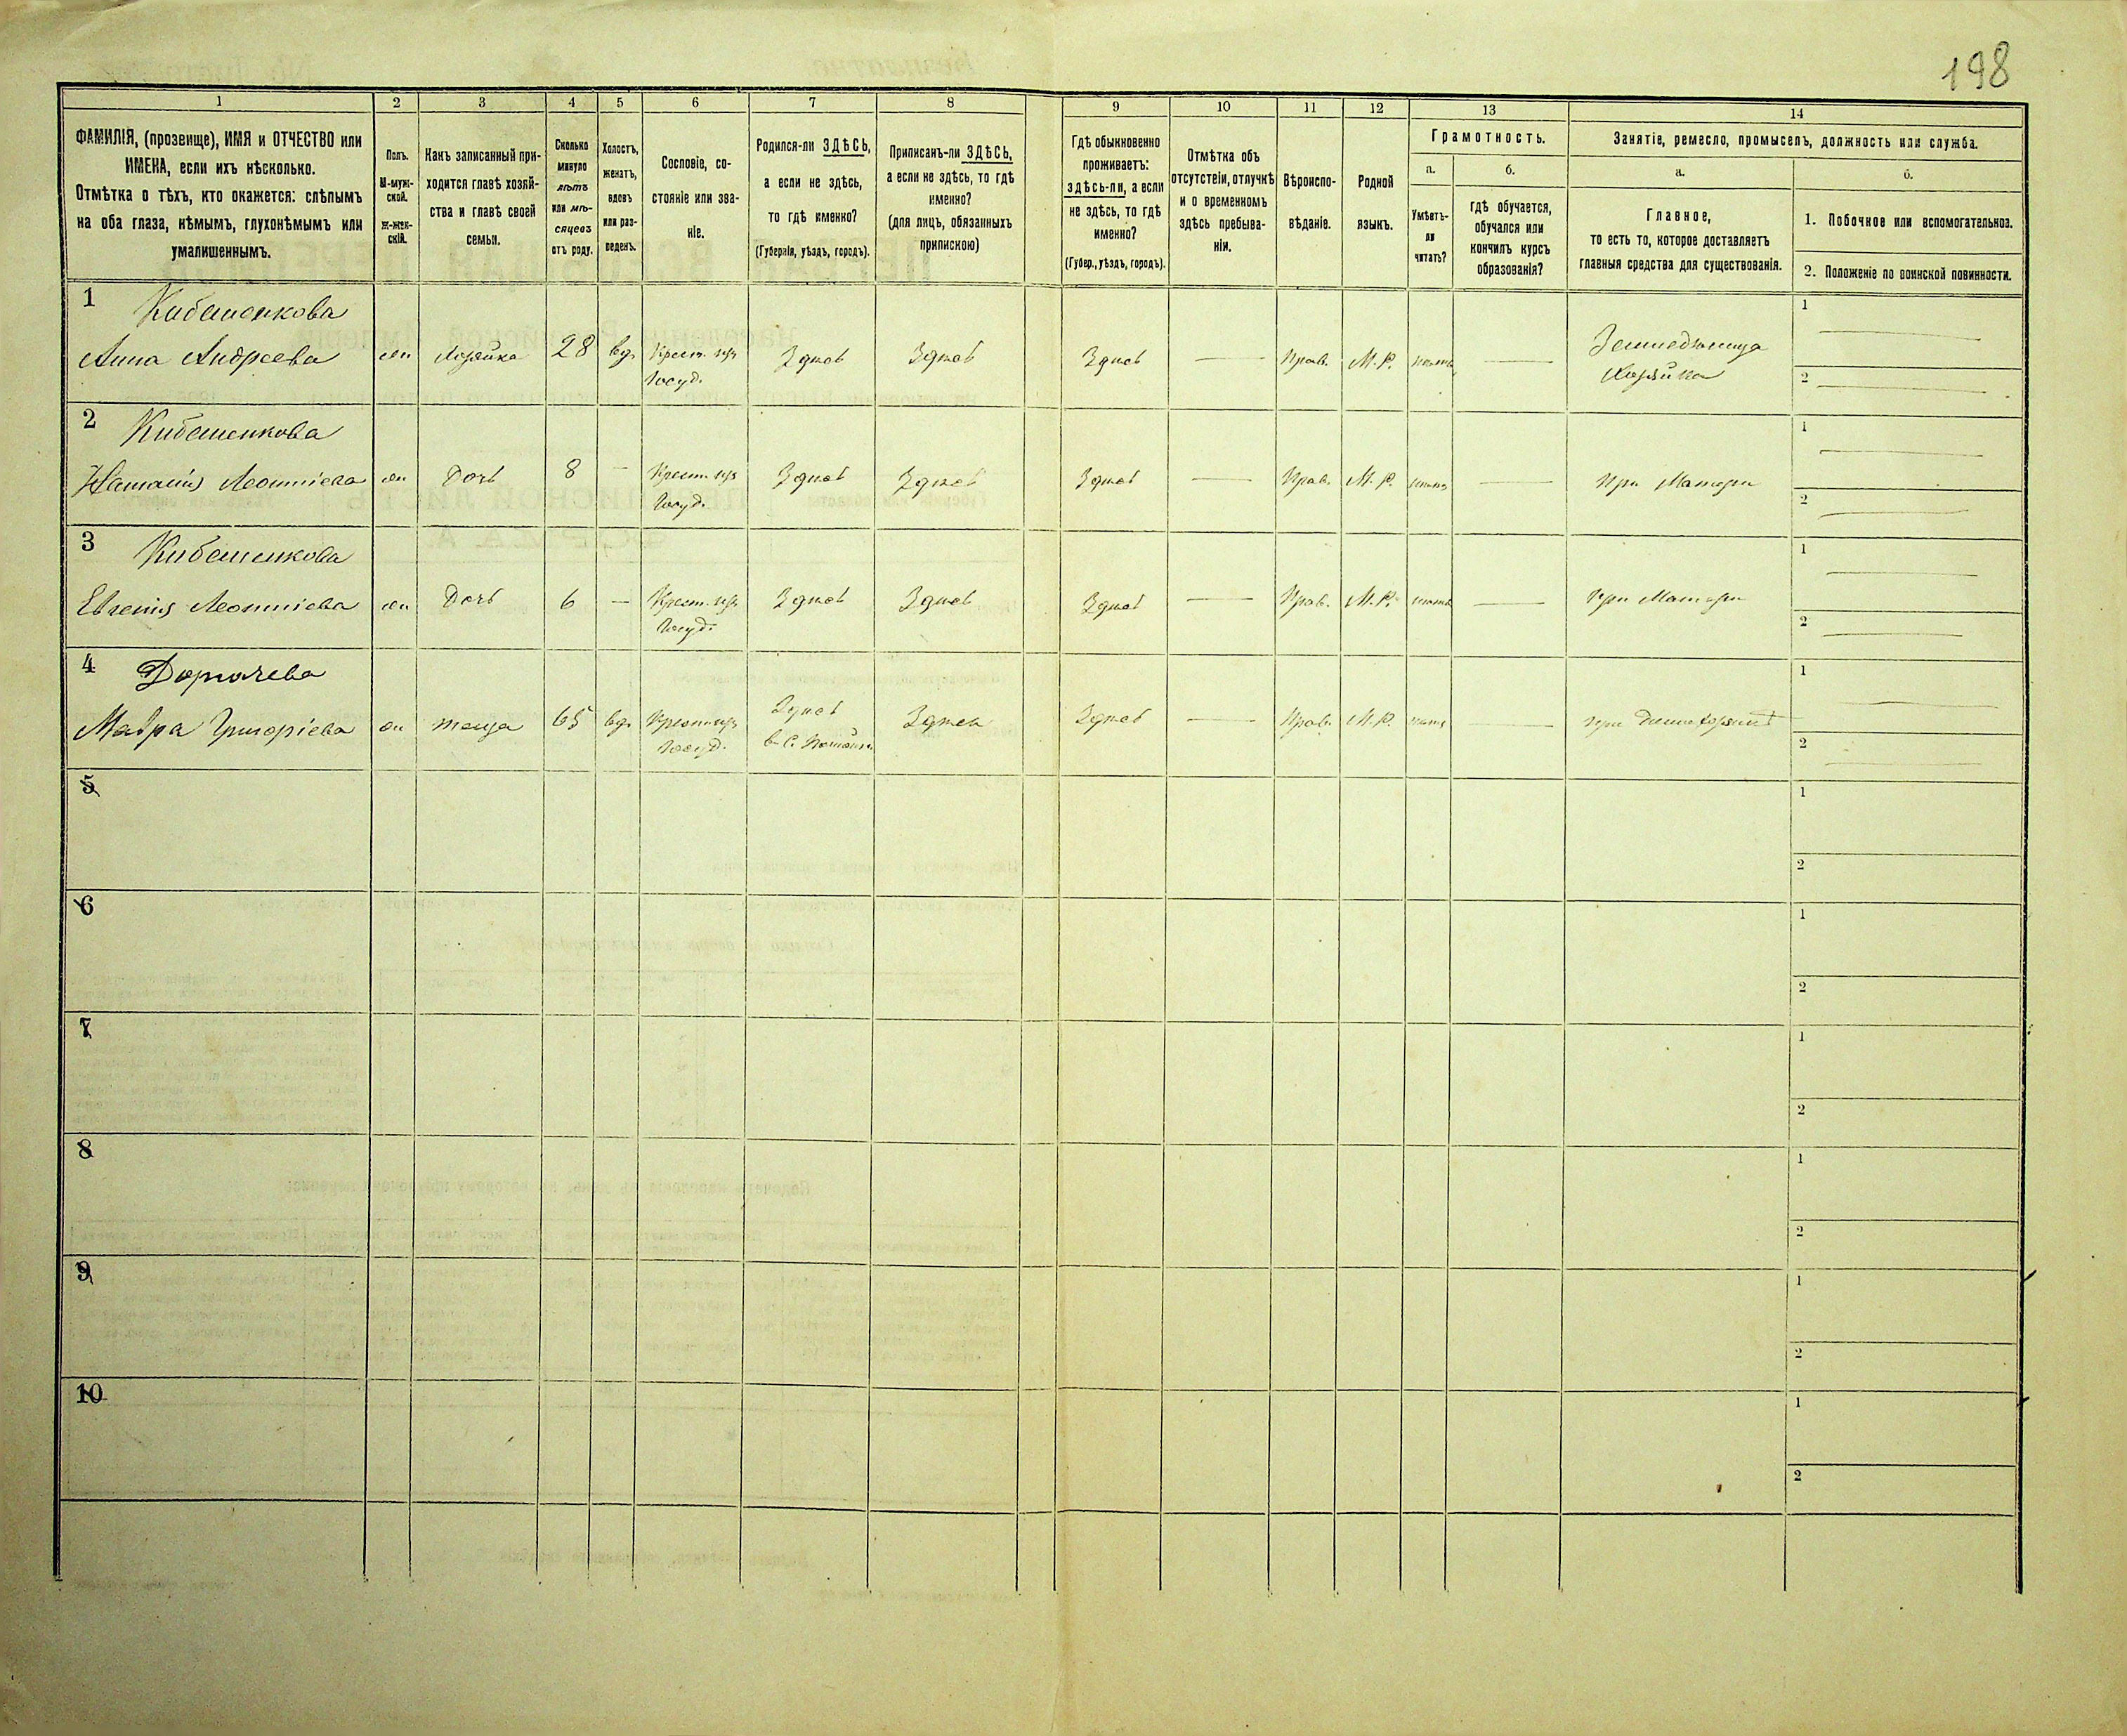 198
1 2 3 4 5 6 7 8 9 10 11 12 13 14
ФАМИЛІЯ, (прозвище), ИМЯ и ОТЧЕСТВО или
ИМЕНА, если ихъ нѣсколько.
Отмѣтка о тѣхъ, кто окажется: слѣпымъ
на оба глаза, нѣмымъ, глухонѣмымъ или
умалишеннымъ.
Полъ.
М-муж-
ской.
Ж-жен-
скій.
Какъ записанный при-
ходится главѣ хозяй-
ства и главѣ своей
семьи.
Сколько
минуло
лѣтъ
или мѣ-
сяцевъ
отъ роду.
Холостъ,
женатъ,
вдовъ
или раз-
веденъ.
Сословіе, со-
стояніе или зва-
ніе.
Родился-ли ЗДѢСЬ,
а если не здѣсь,
то гдѣ именно?
(Губернія, уѣздъ, городъ).
Приписанъ-ли ЗДѢСЬ,
а если не здѣсь, то гдѣ
именно?
(для лицъ, обязанныхъ
припискою)
Гдѣ обыкновенно
проживаетъ:
здѣсь-ли, а если
не здѣсь, то гдѣ
именно?
(Губер., уѣздъ, городъ).
Отмѣтка объ
отсутствіи, отлучкѣ
и о временномъ
здѣсь пребыва-
ніи.
Вѣроиспо-
вѣданіе.
Родной
языкъ.
Грамотность.
а.
Умѣетъ-
ли
читать?
б.
гдѣ обучается,
обучался или
кончилъ курсъ
образованія?
Занятіе, ремесло, промыселъ, должность или служба.
а.
Главное,
то есть то, которое доставляетъ
главныя средства для существованія.
б.
1. Побочное или вспомогательное.
2. Положеніе по воинской повинности.
1 Кибешенкова
Анна Андреева жн Хозяйка 28 вд. Крест. изъ Здесь Здесь Здесь — Прав. М.Р. нетъ — Земледѣлица 1 —
Госуд. Хозяйка 2 —
2 Кибешенкова
Наталія Леонтіева жн Дочь 8 — Крест. изъ Здесь Здесь Здесь — Прав. М.Р. нетъ — При Матери 1 —
Госуд. 2 —
3 Кибешенкова
Евгенія Леонтіева жн Дочь 6 — Крест. изъ Здесь Здесь Здесь — Прав. М.Р. нетъ — При Матери 1 —
Госуд. 2 —
4 Доркачева
Мавра Григоріева жн теща 65 вд. Крест. изъ Здесь Здесь Здесь — Прав. М.Р. нетъ — при 1 —
Госуд. в С. 2 —
5 1
2
6 1
2
7 1
2
8 1
2
9 1
2
10 1
2